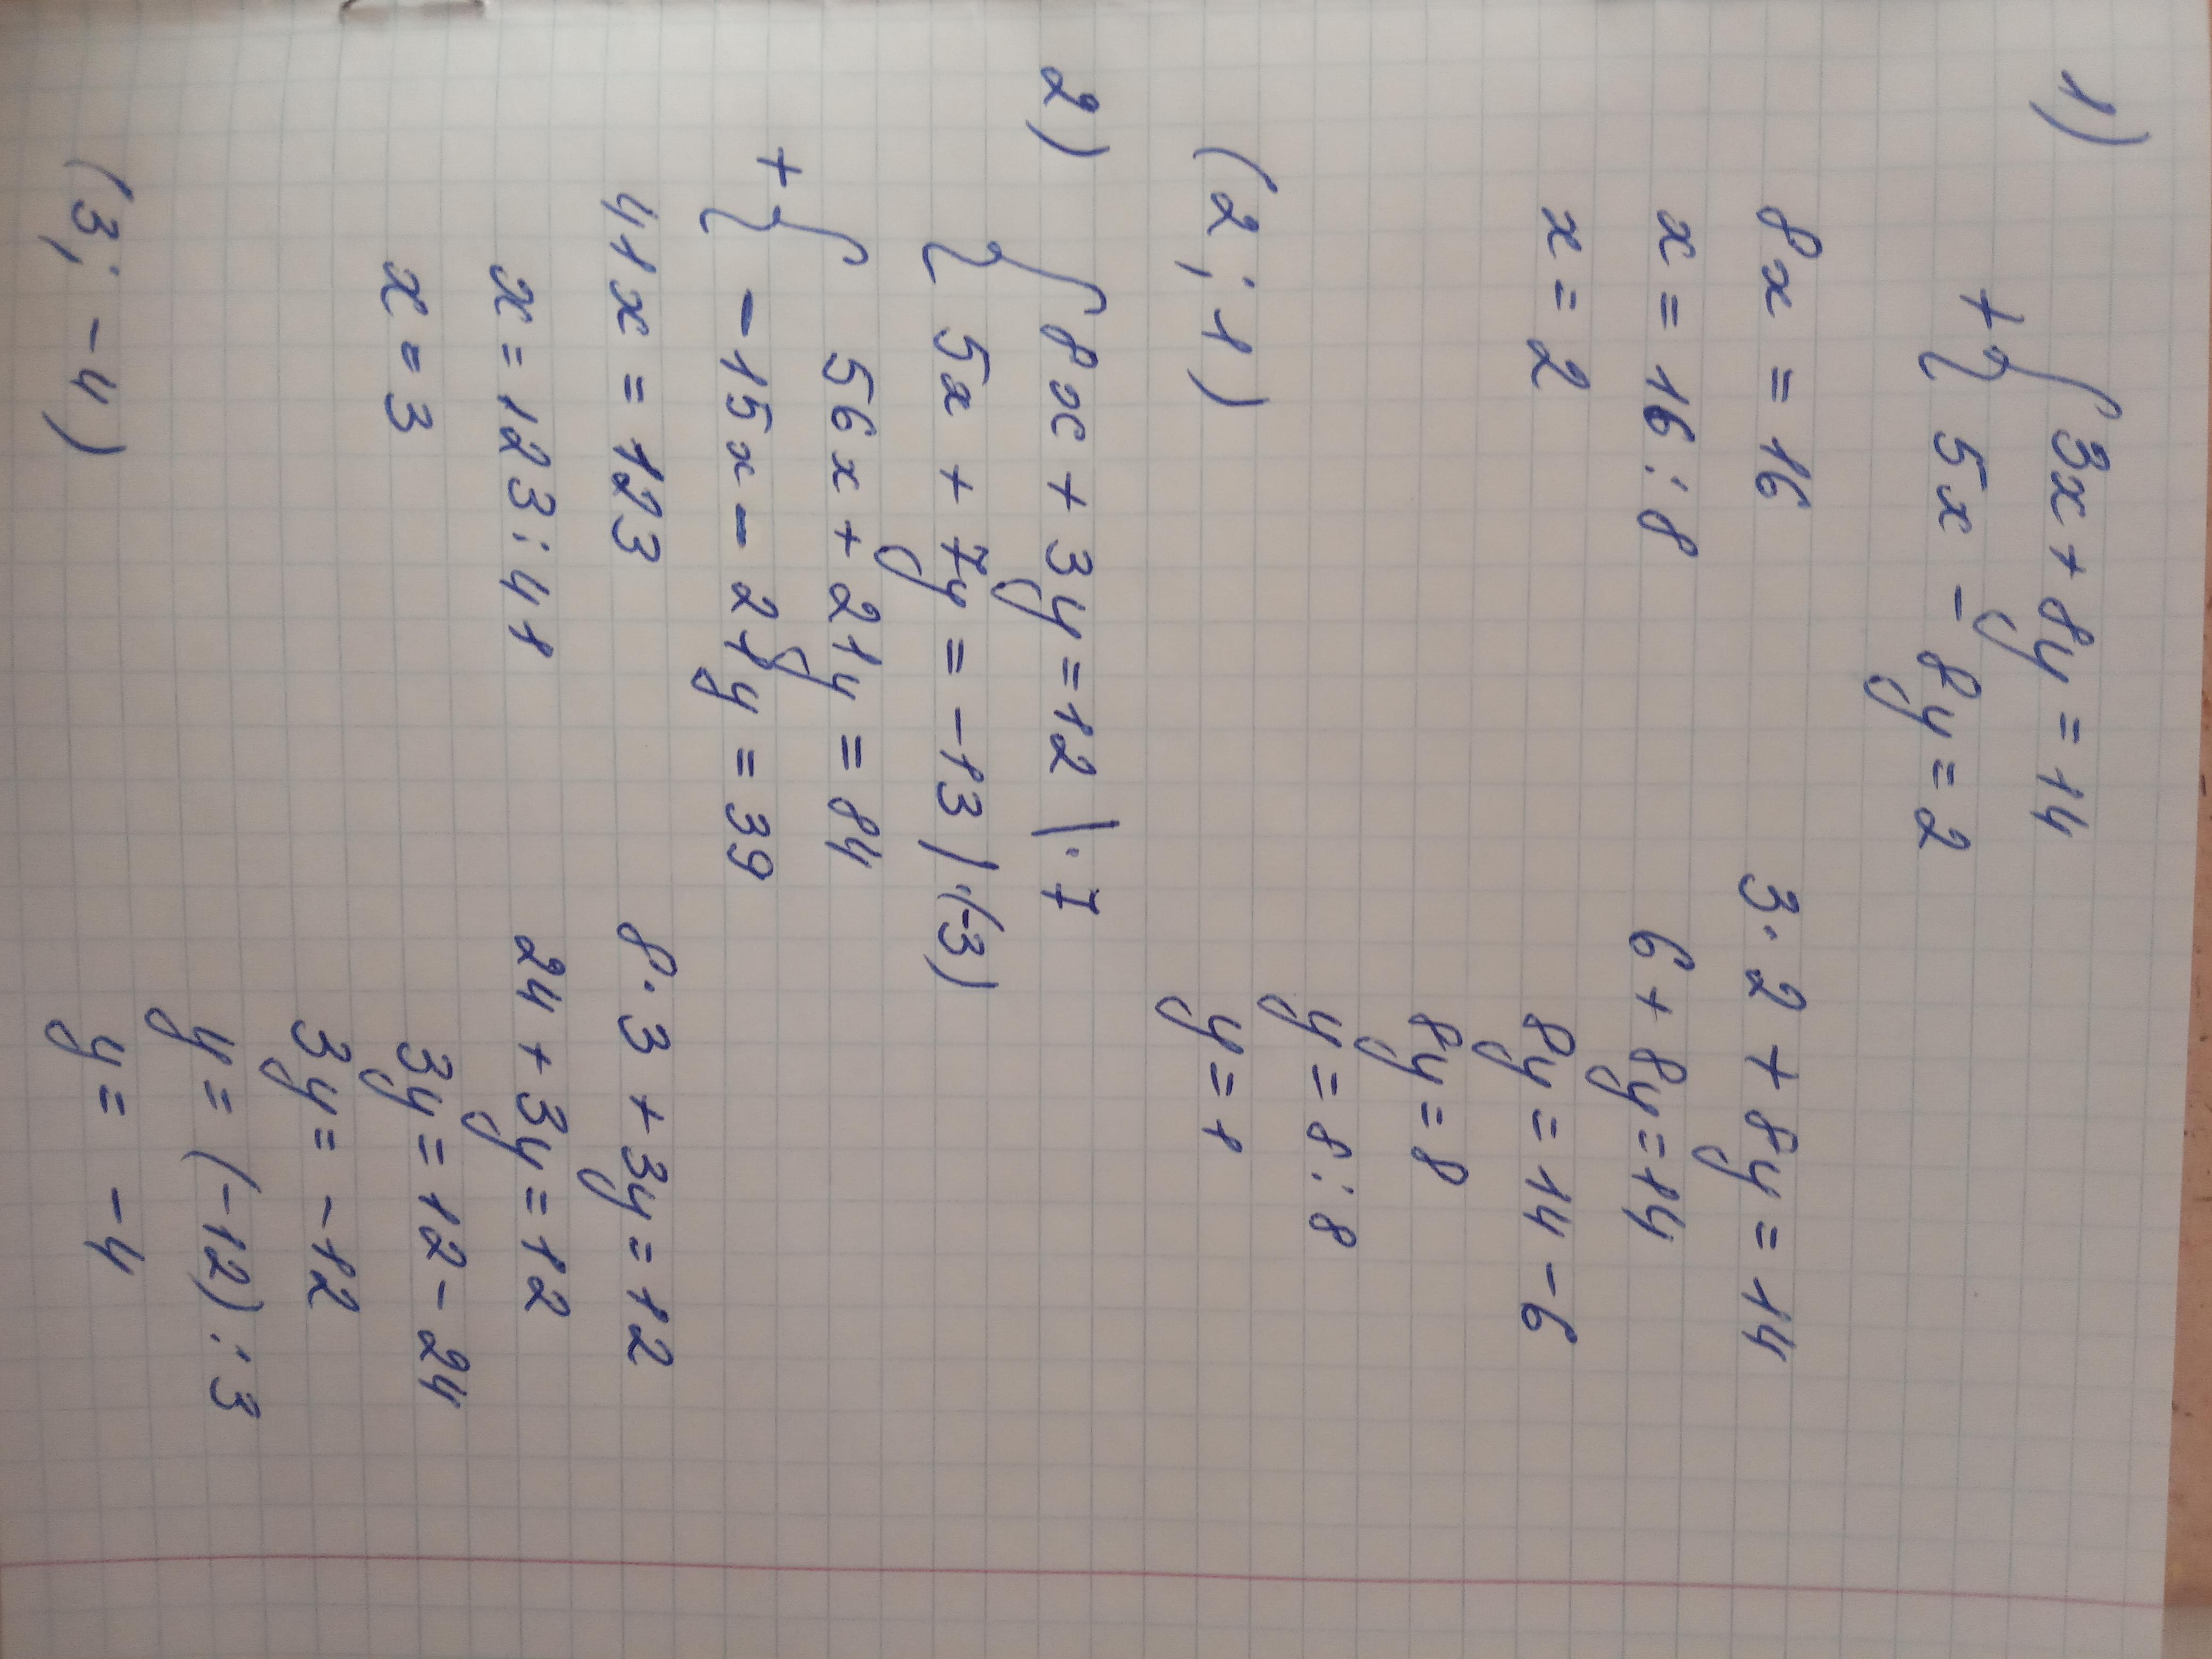 1)
{ 3x + 8y = 14
+ { 5x - 8y = 2
8x = 16
x = 16 : 8
x = 2
3 · 2 + 8y = 14
6 + 8y = 14
8y = 14 - 6
8y = 8
y = 8 : 8
y = 1
(2 ; 1)
2)
{ 8x + 3y = 12 | · 7
{ 5x + 7y = -13 | · (-3)
{ 56x + 21y = 84
+ { -15x - 21y = 39
41x = 123
x = 123 : 41
x = 3
8 · 3 + 3y = 12
24 + 3y = 12
3y = 12 - 24
3y = -12
y = (-12) : 3
y = -4
(3 ; -4)